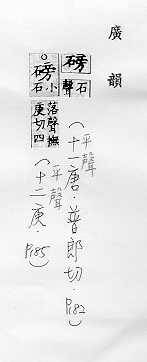 廣韻
磅石聲（平聲十一唐．普郎切．P182）
○磅小石落聲撫庚切四（平聲十二庚．P185）